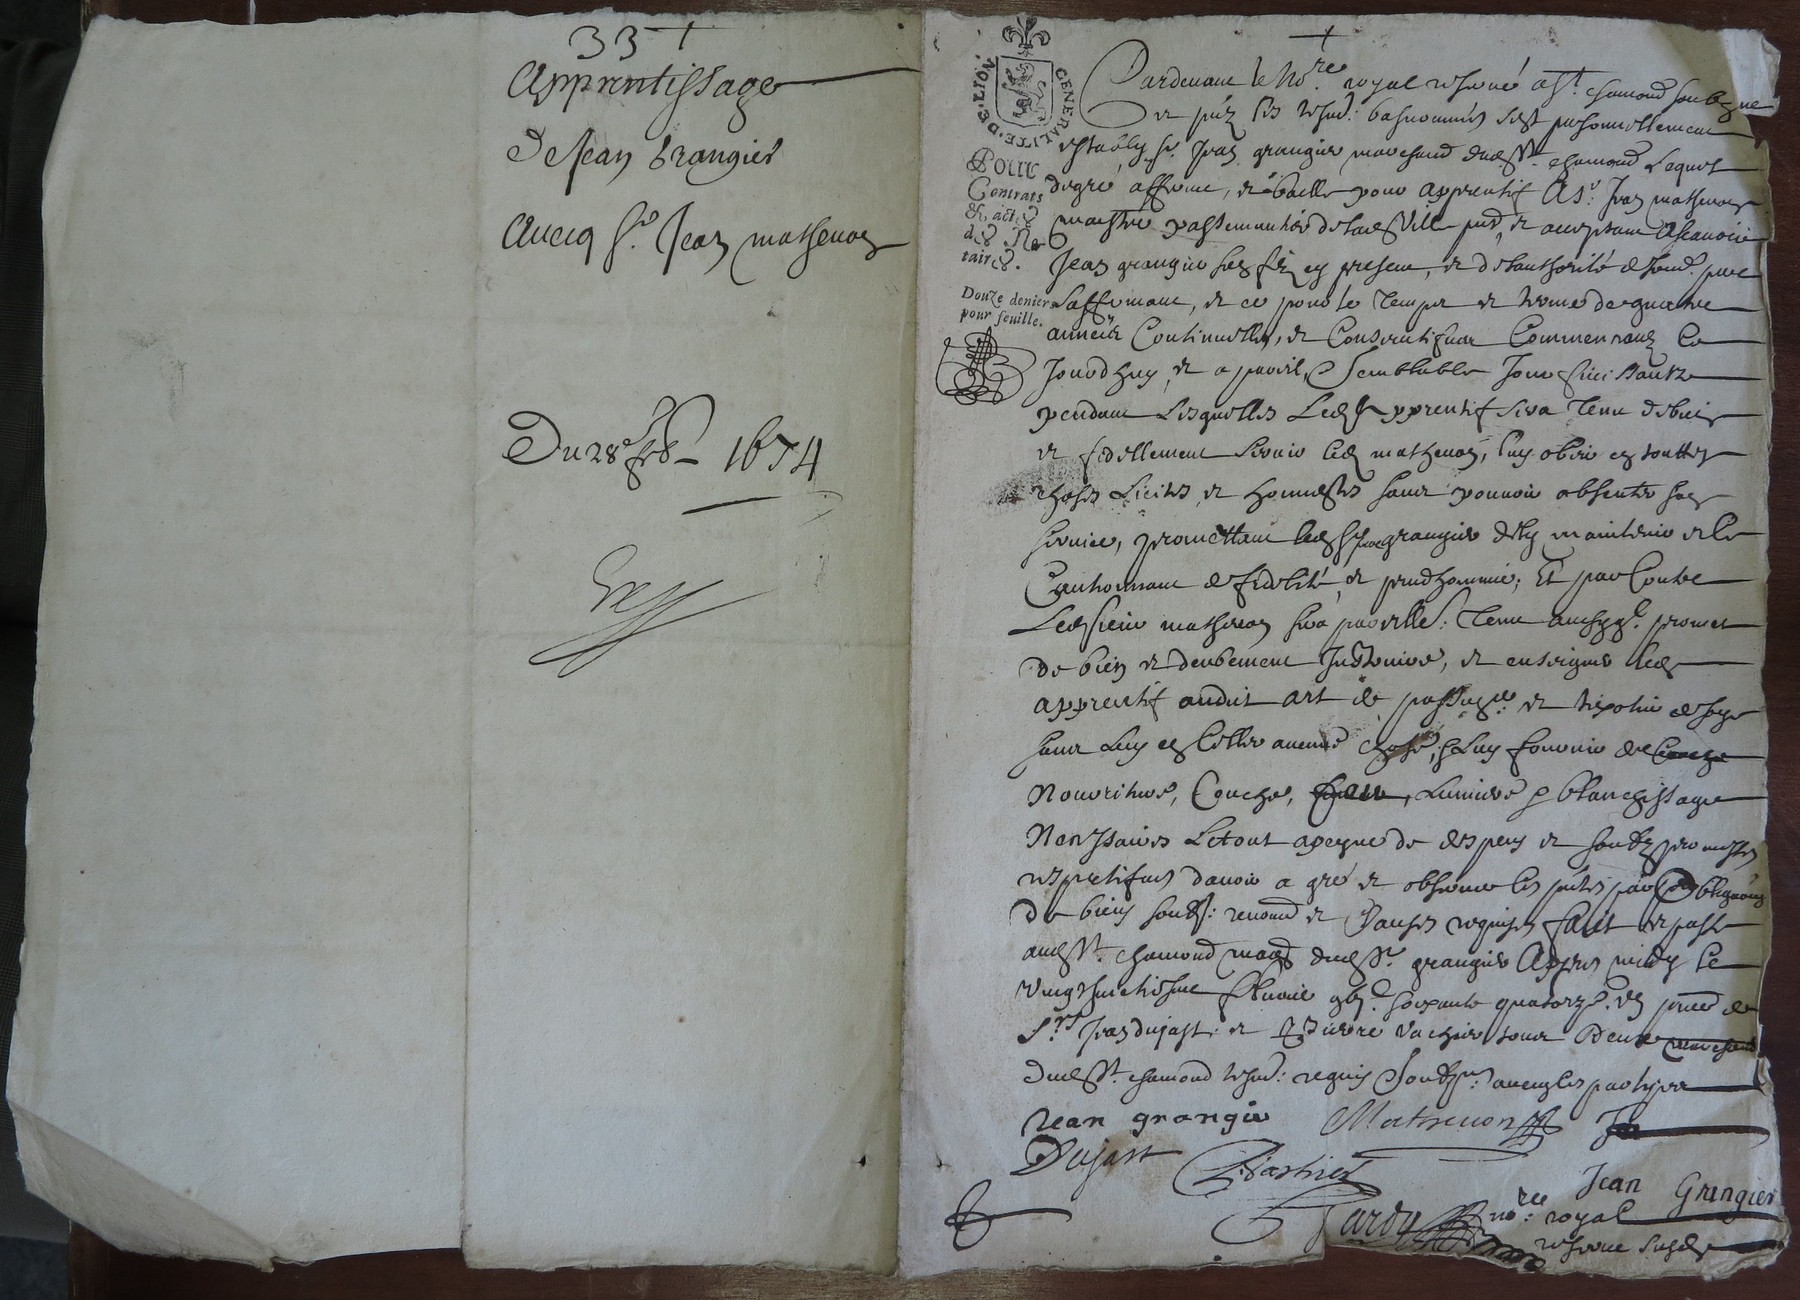 33 +
Apprentissage
De Jean Grangier
Avecq Sr. Jean mathevon
Du 28e feb 1674
+
GENERALITE·DE·LION
Pour
Contrats
& actes
des No
taires.
Douze deniers
pour feuille.
Pardevant le No.re royal reservé a St. chamond soubzne
et pñz les tesm: basnommés s'est personnellement
estably Sr. Jean grangier marchand dud St. chamond Lequel
de gré afferme, et baille pour apprentif A Sr. Jean mathevon
maistre passemantier de lad Ville pnt, et acceptant Ascavoir
Jean grangier son filz cy present, et de l'authorité dud. pere
L'affermant, et ce pour le temps et terme de quatre
années Continuelles, et Consecutifves Commencant Ce
Jourdhuy, et a pareil, et Semblable Jour finissants
pendant Lesquelles Led Apprentif sera tenu de bien
et fidellement Servir led mathevon, luy obeir en touttes
choses Licites, et honnestes sans pouvoir absenter son
service, promettant led Sr grangier de l'y maintenir et le
Cautionnant de fidelité, et prudhommie; Et par Contre
Led sieur mathevon sera pareille: tenu promet
de bien et deubement Instruire, et enseigner led
apprentif audit art de passem. et de soye
sans Luy en Celler aucune chose, Luy fournir de
Nourriture, Couche, Lumiere & blanchissage
Necessaires Le tout a peyne de despens et soubz promesses
respectifves d'avoir a gré et observer les pñtes par obligations
de biens soubz: renond et Clauses requises fait et passé
aud St. chamond maison dud Sr. grangier Apres midy le
vingthuictiesme febvrier gbi.c soixante quatorze. En pñce de
Srs Jean dujast, et Pierre Vachier tous Deux
dud St. chamond tesm: requis Soubz.nes avec les parties
Jean grangie Mathevon Je
Dujast Vachier
Jean Grangier
Jardy no.re royal
reservé susd